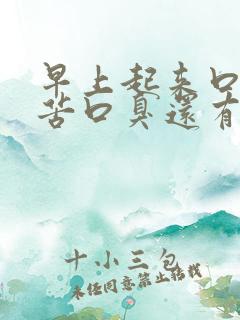 早上起来口
苦口臭還有
十小三包
未经同意禁止转载